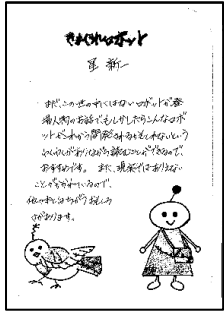 きまぐれロボット
星 新一
まだ、この世の中にはないロボットが登
場人物のお話で、もしかしたらこんなロボ
ットがこれから開発されるかもしれないという
わくわくがありながら読むことができるので、
おすすめです。また、現実ではありえない
ことがかかれているので、
他の本とはちがう楽しみ
があります。